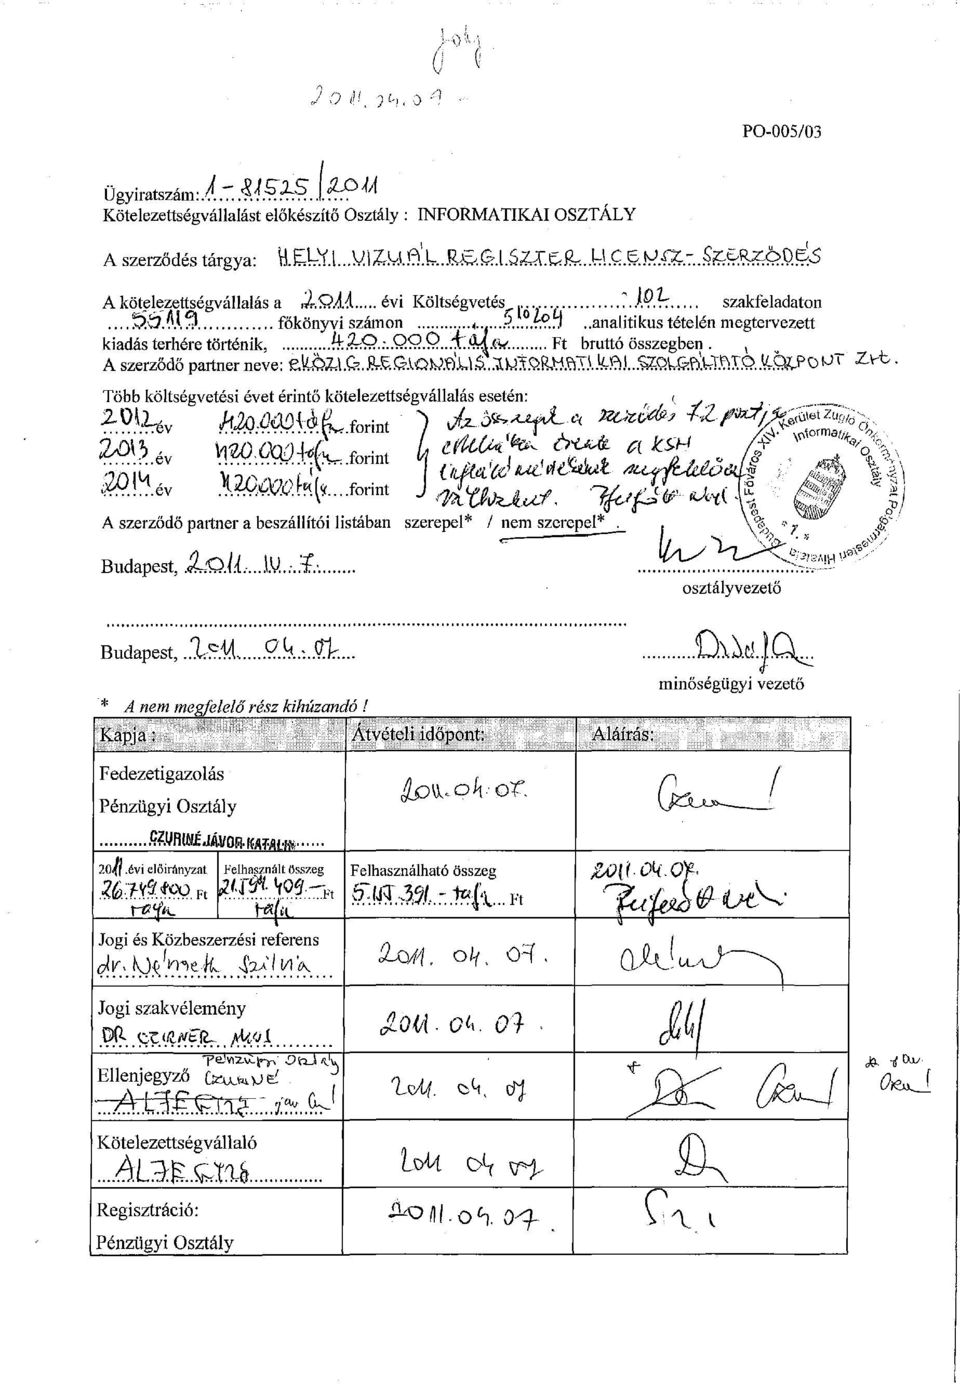 2011.04.07
PO-005/03
Ügyiratszám: 1-81525/2011
Kötelezettségvállalást előkészítő Osztály : INFORMATIKAI OSZTÁLY
A szerződés tárgya: HELYI VIZUÁL REGISZTER LICENSZ-SZERZŐDÉS
A kötelezettségvállalás a 2011 évi Költségvetés 102 szakfeladaton
55119 főkönyvi számon 516204 analitikus tételén megtervezett
kiadás terhére történik, 420.000 + áfa Ft bruttó összegben.
A szerződő partner neve: E-KÖZIG REGIONÁLIS INFORMATIKAI SZOLGÁLTATÓ KÖZPONT Zrt.
Több költségvetési évet érintő kötelezettségvállalás esetén:
2012 év 420.000+áfa forint
2013 év 420.000+áfa forint
2014 év 420.000+áfa forint
Az összegek a szerződés 7.2 pontja
értelmében évente a KSH
inflációs megfelelően
változhat.
Budapest Főváros XIV. Kerület Zugló Önkormányzat Polgármesteri Hivatala
Informatikai Osztály
7.
A szerződő partner a beszállítói listában szerepel* / nem szerepel* .
Budapest, 2011. IV. 7.
osztályvezető
Budapest, 2011. 04. 07.
minőségügyi vezető
* A nem megfelelő rész kihúzandó !
Kapja : Átvételi időpont: Aláírás:
Fedezetigazolás
Pénzügyi Osztály
2011.04.07.
CZURINÉ JÁVOR KATALIN
2011 .évi előirányzat Felhasznált összeg Felhasználható összeg 2011.04.07.
Ft Ft Ft
Jogi és Közbeszerzési referens
dr. Németh Szilvia 2011. 04. 07.
Jogi szakvélemény
DR CZIRNER 2011. 04. 07.
Pénzügyi Osztály
Ellenjegyző CZURINÉ
2011. 04. 07
Kötelezettségvállaló
2011 04 07
Regisztráció: 2011.04.07.
Pénzügyi Osztály